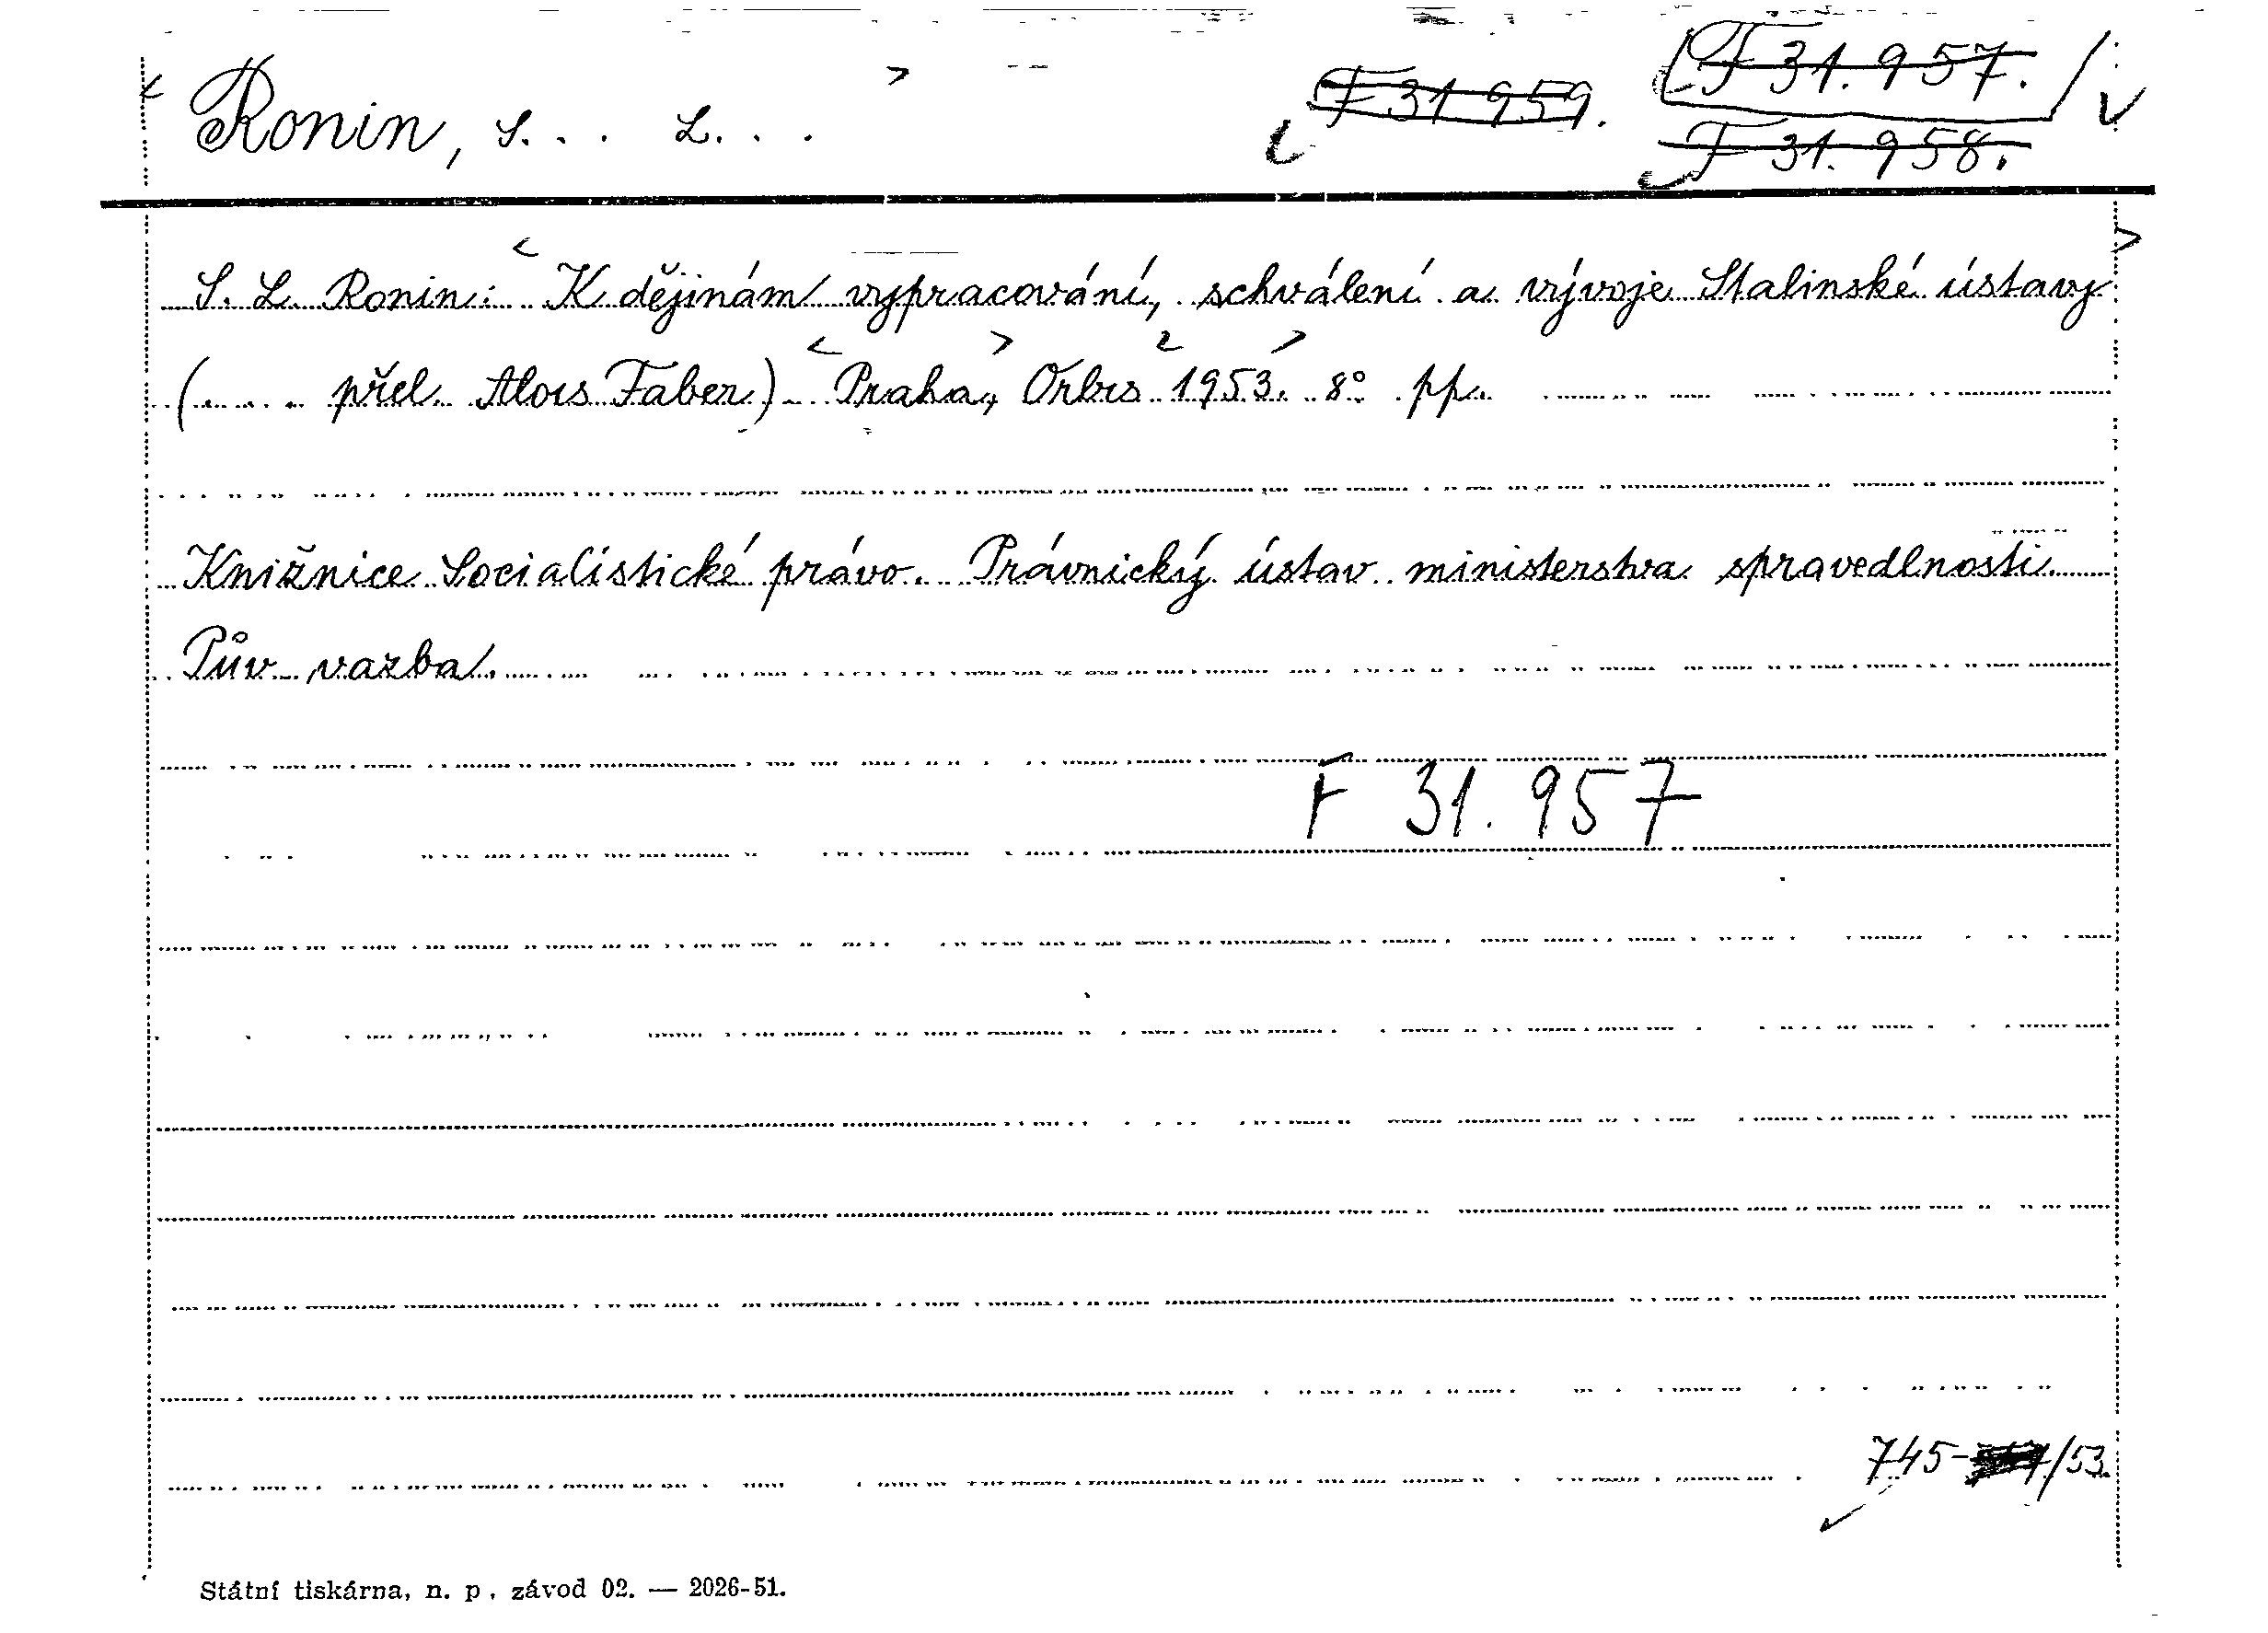 Ronin, S. . . L. . .
F 31.959.
F 31.957.
F 31.958.
S. L. Ronin: K dějinám vypracování, schválení a vývoje Stalinské ústavy
(. . . . přel. Alois Faber) Praha, Orbis 1953. 8° pp.
Knižnice Socialistické právo. Právnický ústav ministerstva spravedlnosti
Pův. vazba.
F 31.957
745- /53.
Státní tiskárna, n. p., závod 02. — 2026-51.